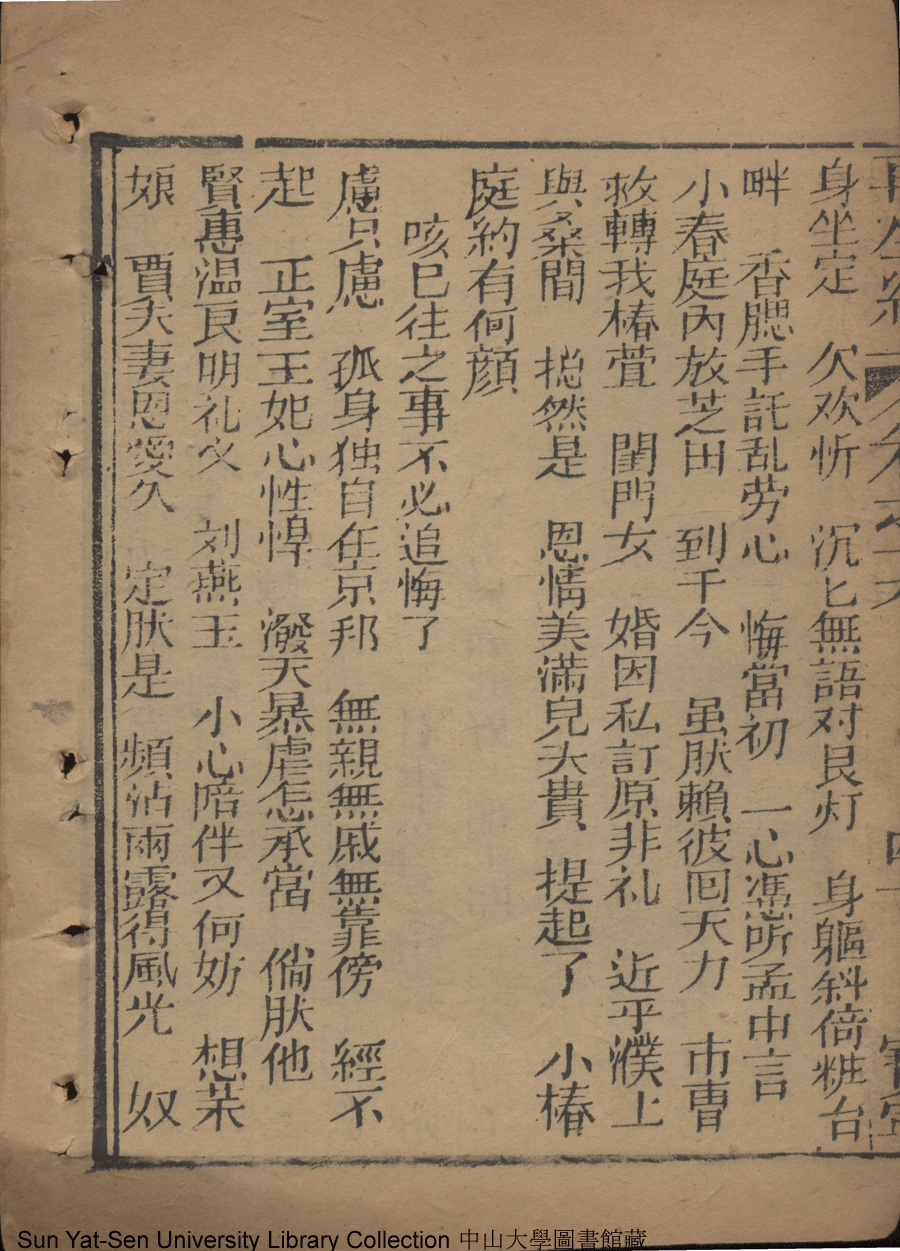 再生緣 卷之六 四十
身坐定 欠欢忻 沉匕無語对艮灯 身軀斜倚粧台
畔 香腮手託乱劳心 悔當初 一心憑所孟中言
小春庭內放芝田 到千今 虽肰賴彼囘天力 市曹
救轉我椿萱 閨門女 婚因私訂原非礼 近乎濮上
與桑間 揔然是 恩情美滿兒夫貴 提起了 小椿
庭約有何顔
咳已往之事不必追悔了
慮只慮 孤身独自在京邦 無親無戚無靠傍 經不
起 正室王妃心性悍 潑天暴虐怎承當 倘肰他
賢惠温良明礼义 刘燕玉 小心陪伴又何妨 想茱
娘 賈夫妻恩愛久 定肰是 頻沾雨露得風光 奴
Sun Yat-Sen University Library Collection 中山大學圖書館藏